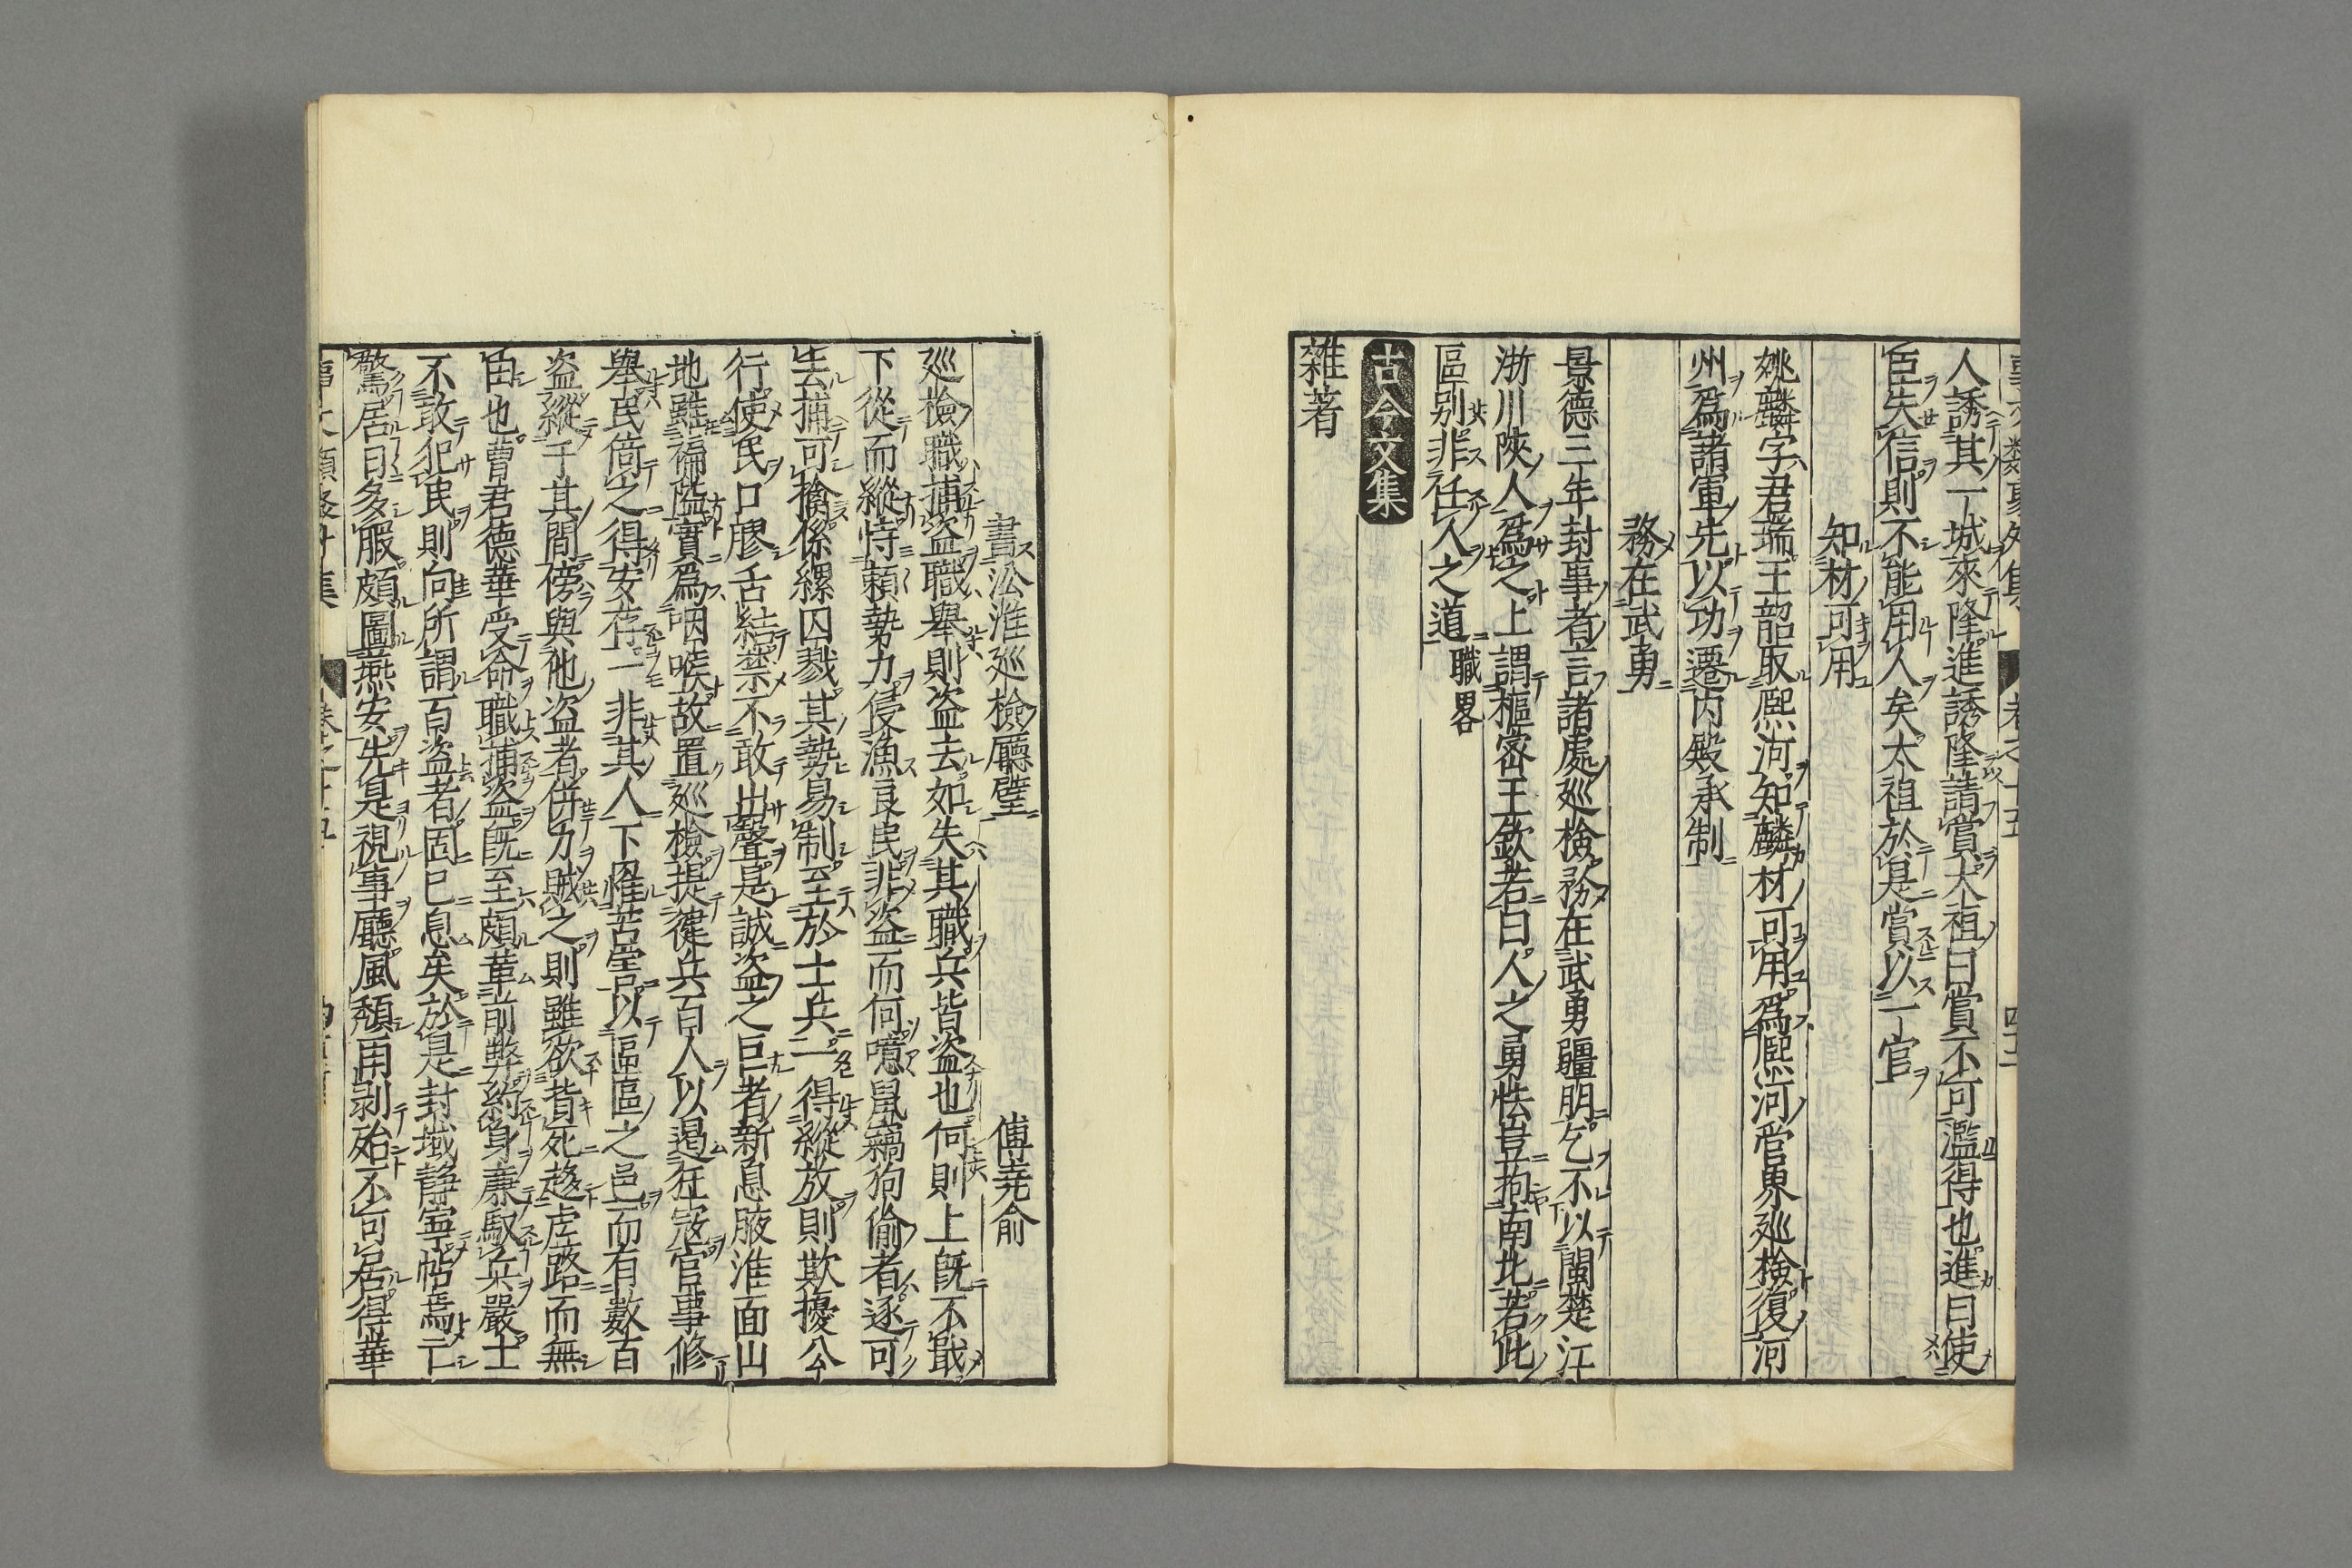 人誘其一城來降進誘降請賞太祖曰賞不可濫得也進曰使
臣失信則不能用人矣太祖於是賞以一官
知材可用
姚麟字君瑞王韶取熈河知麟材可用爲熈河管界廵檢復河
州爲諸軍先以功遷内殿承制
務在武勇
景德三年封事者言諸處廵檢務在武勇疆明乞不以閩楚江
浙川陝人爲之上謂樞宻王欽若曰人之勇怯豈拘南北若此
區别非任人之道職畧
古今文集
雜著
書㳂淮廵檢廳壁 傅堯俞
廵檢職捕盗職舉則盗去如失其職兵皆盗也何則上既不戢
下從而縱恃頼勢力侵漁良民非盗而何噫鼠竊狗偷者逐可
去捕可擒係縲囚戮其勢易制至於士兵一得縱放則欺擾公
行使民口膠舌結禁不敢出聲是誠盗之巨者新息腋淮面山
地雖褊隘實爲咽喉故置廵檢提健兵百人以遏狂冦官事修
舉民倚之得安存一非其人下罹苦害以區區之邑而有數百
盗縱于其間傍與他盗者併力賊之則雖欲昔死趍虗路而無
由也曹君德華受命職捕盗既至頗革前弊約身亷馭兵嚴士
不敢犯民則向所謂百盗者固已息矣於是封域靜寧帖焉亡
驚居日多暇頗圖燕安先是視事廳風頽雨剥殆不可居得華